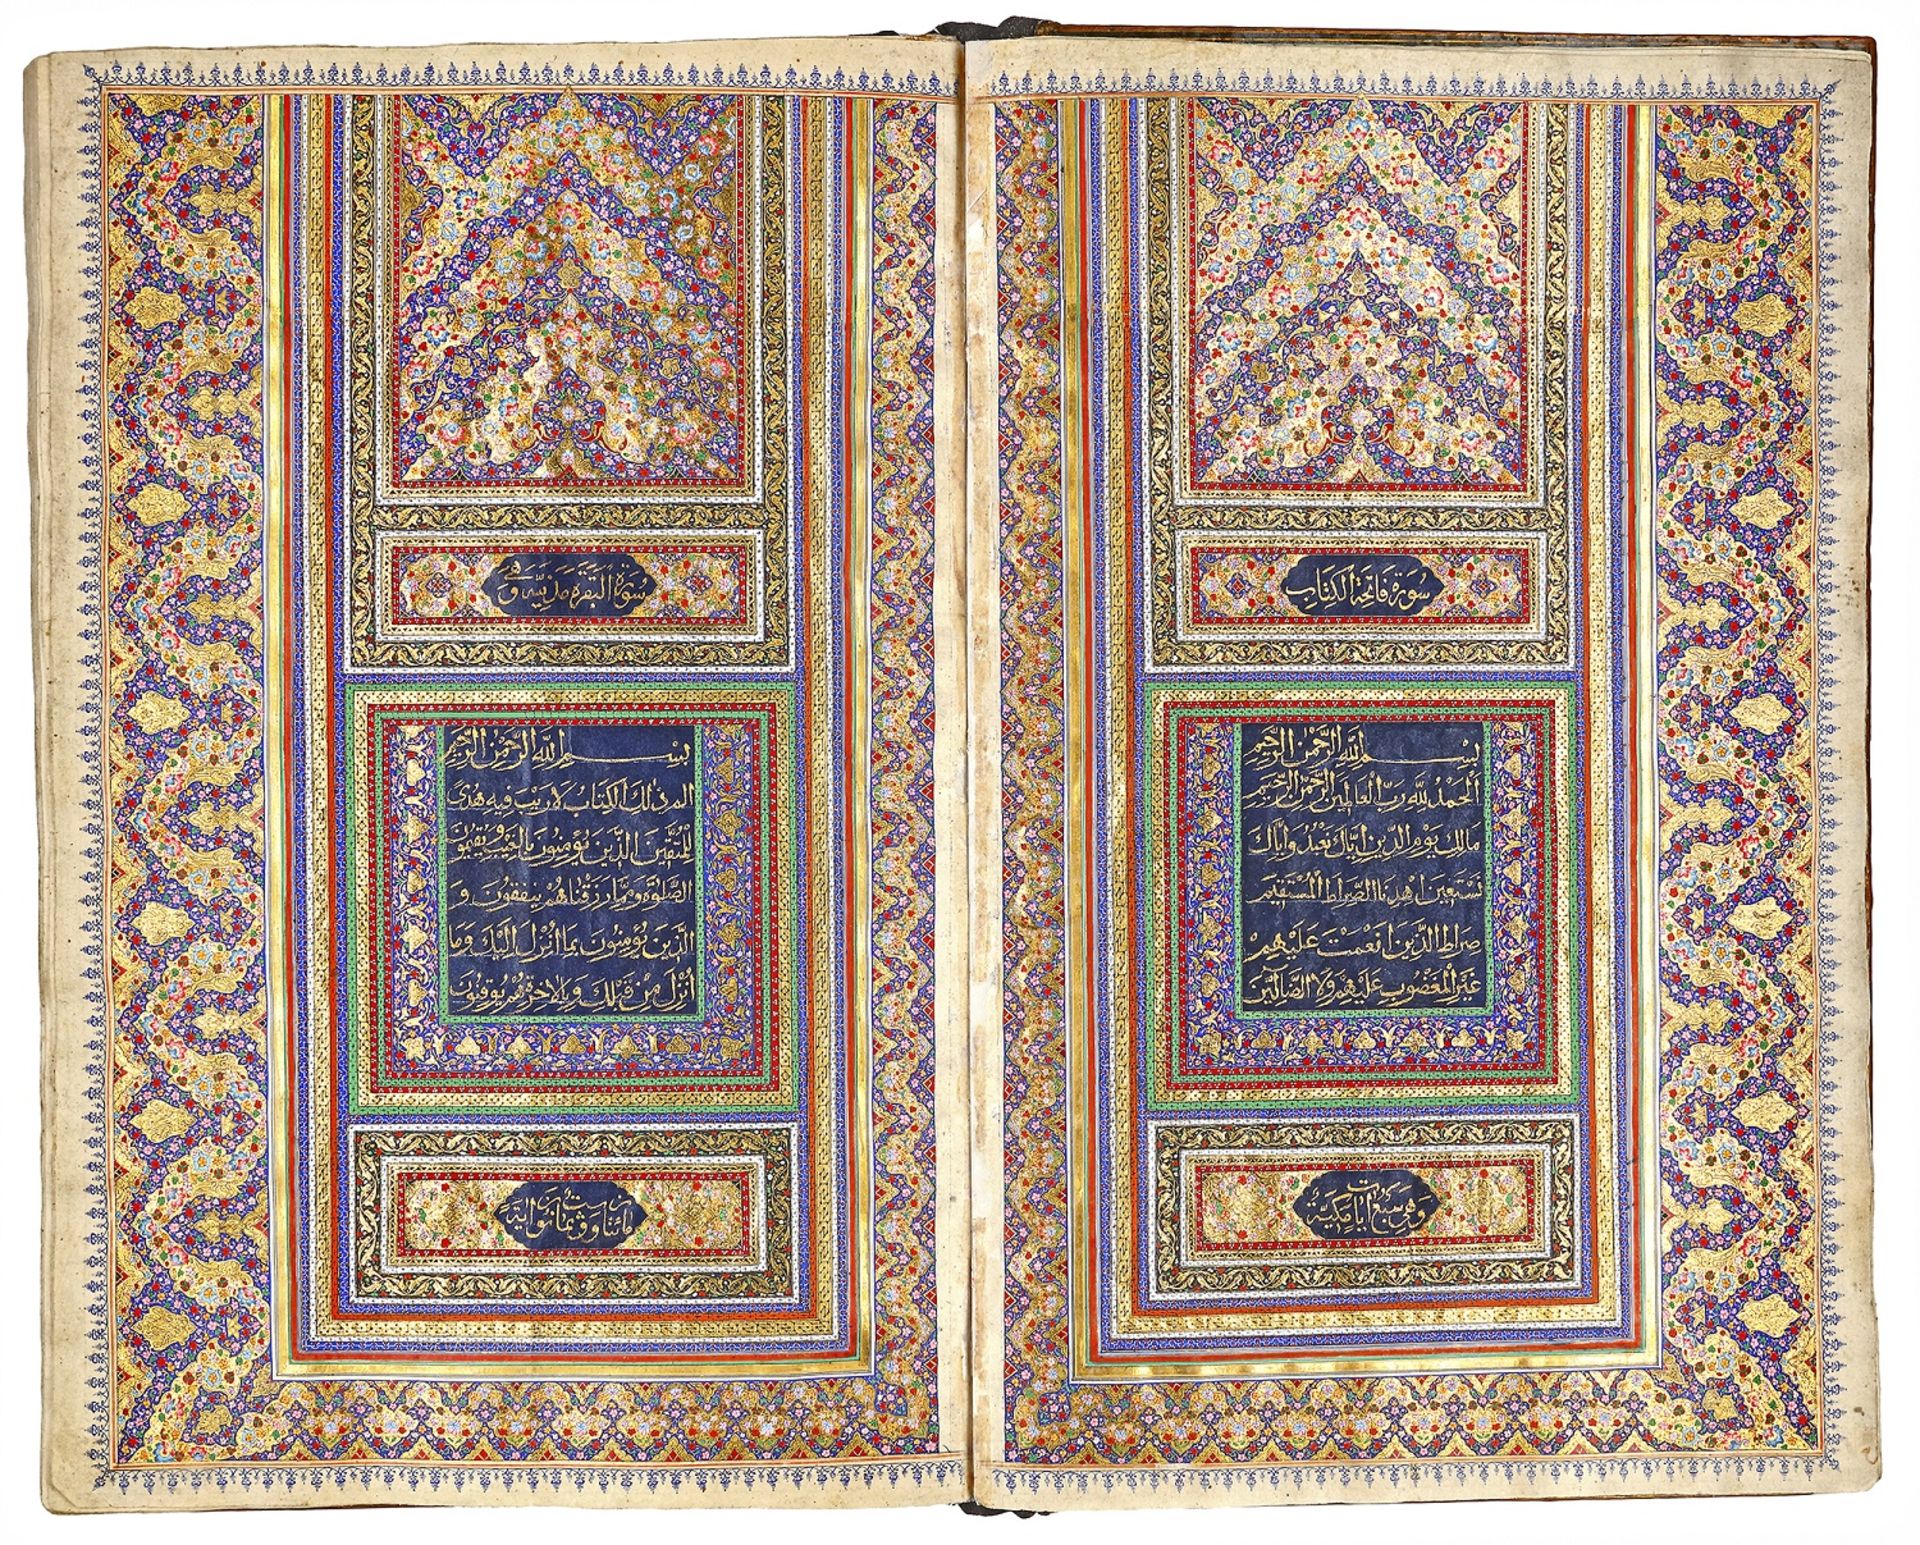 سُورَة فَاتِحَة الكِتَابِ
بِسْمِ اللَّهِ الرَّحْمٰنِ الرَّحِيمِ
اَلْحَمْدُ لِلَّهِ رَبِّ الْعَالَمِينَ الرَّحْمٰنِ الرَّحِيمِ
مَالِكِ يَوْمِ الدِّينِ اِيَّاكَ نَعْبُدُ وَاِيَّاكَ
نَسْتَعِينُ اهْدِنَا الصِّرَاطَ الْمُسْتَقِيمَ
صِرَاطَ الَّذِينَ اَنْعَمْتَ عَلَيْهِمْ
غَيْرِ الْمَغْضُوبِ عَلَيْهِمْ وَلَا الضَّالِّينَ
وَهِيَ سَبْعُ آيَاتٍ مَكِّيَّةٌ
سُورَةُ الْبَقَرَةِ مَدَنِيَّةٌ وَهِيَ
بِسْمِ اللَّهِ الرَّحْمٰنِ الرَّحِيمِ
الم ذٰلِكَ الْكِتَابُ لَا رَيْبَ فِيهِ هُدًى
لِلْمُتَّقِينَ الَّذِينَ يُؤْمِنُونَ بِالْغَيْبِ وَيُقِيمُونَ
الصَّلٰوةَ وَمِمَّا رَزَقْنَاهُمْ يُنْفِقُونَ وَ
الَّذِينَ يُؤْمِنُونَ بِمَا اُنْزِلَ اِلَيْكَ وَمَا
اُنْزِلَ مِنْ قَبْلِكَ وَبِالْاٰخِرَةِ هُمْ يُوقِنُونَ
مائتان وثمانون